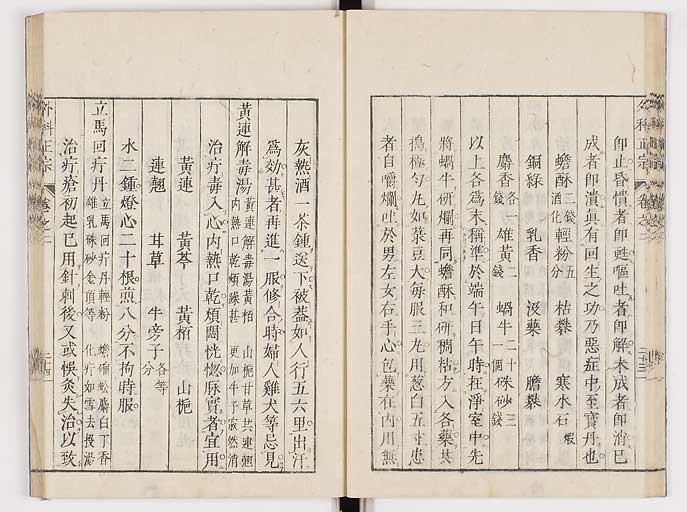 即止昏憒者即甦嘔吐者即解未成者即消已
成者即潰眞有回生之功乃惡症中至寶丹也
蟾酥二錢酒化輕粉五分 枯礬 寒水石煅
銅綠 乳香 沒藥 膽礬
麝香各一錢雄黃二錢 蝸牛二十一個硃砂三錢
以上各為末稱準於端午日午時在淨室中先
將蝸牛研爛再同蟾酥和研稠粘方入各藥共
搗極勻丸如菉豆大每服三丸用葱白五寸患
者自嚼爛吐於男左女右手心包藥在內用無
外科正宗 卷之二 二十三
灰熱酒一茶鍾送下被蓋如人行五六里出汗
為効甚者再進一服修合時婦人雞犬等忌見
黃連解毒湯 黃連解毒湯黃栢 山梔甘草共連翹 內熱口乾煩躁甚 更加牛子寂然消
治疔毒入心內熱口乾煩悶恍惚脉實者宜用
黃連 黃芩 黃栢 山梔
連翹 甘草 牛旁子各等分
水二鍾燈心二十根煎八分不拘時服
立馬回疔丹 立馬回疔丹輕粉 蟾硇蚣麝白丁香 雄乳硃砂金頂等 化疔如雪去投湯
治疔瘡初起已用針刺後又或悞灸失治以致
外科正宗 卷之二 二十四